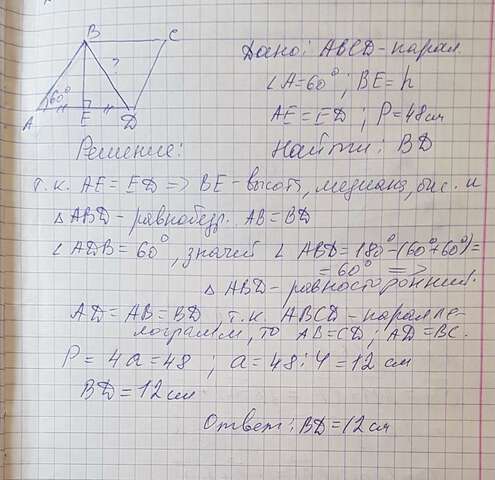 B C
?
60°
A E D
Дано: ABCD - парал.
∠A = 60°; BE = h
AE = ED; P = 48 см
Решение: Найти: BD
т.к. AE = ED => BE - высота, медиана, бис. и
△ ABD - равнобедр. AB = BD
∠ ADB = 60°, значит ∠ ABD = 180° - (60° + 60°) =
= 60° =>
△ ABD - равносторонний.
AD = AB = BD т.к ABCD - паралле-
лограмм, то AB = CD; AD = BC.
P = 4a = 48 ; a = 48 : 4 = 12 см
BD = 12 см
Ответ: BD = 12 см